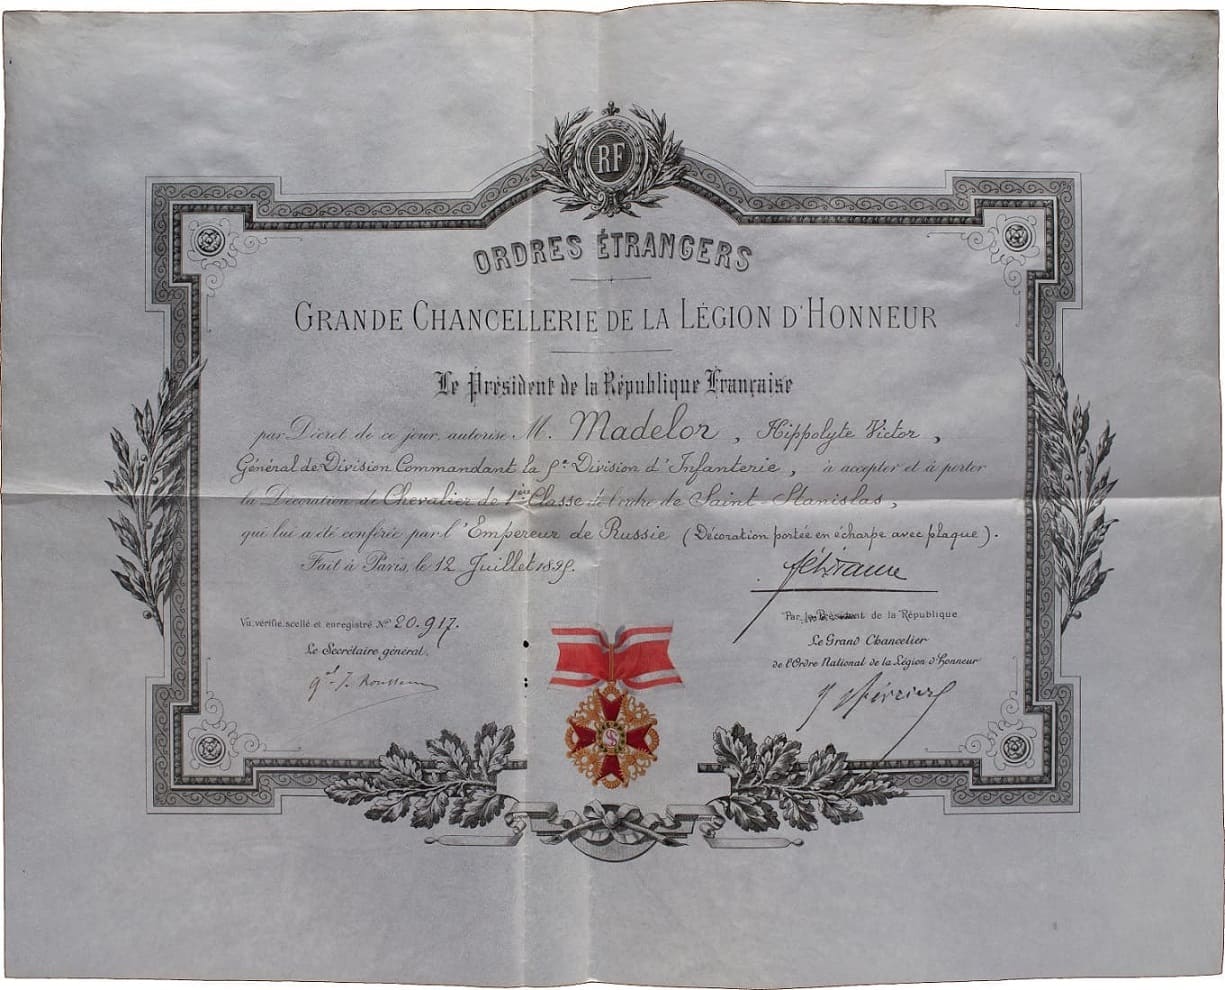 RF
ORDRES ÉTRANGERS
GRANDE CHANCELLERIE DE LA LÉGION D'HONNEUR
Le Président de la République Française
par Décret de ce jour, autorise M. Madelor, Hippolyte Victor,
Général de Division Commandant la Division d'Infanterie, à accepter et à porter
la Décoration de Chevalier de 1ère Classe de l'ordre de Saint-Stanislas,
qui lui a été conférée par l'Empereur de Russie (Décoration portée en écharpe avec plaque).
Fait à Paris, le 12 Juillet 1895.
Vu, vérifié, scellé et enregistré No 20.917.
Par le Président de la République
Le Secrétaire général,
Le Grand Chancelier
de l'Ordre National de la Légion d'honneur
gal J. Rousseau